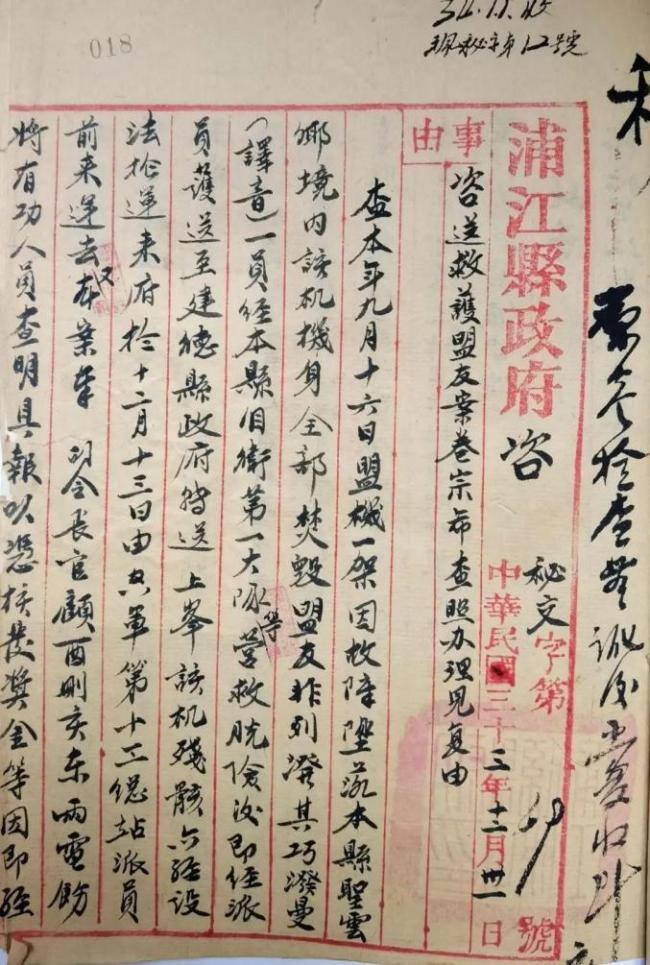 018
浦江縣政府 咨
秘文字第 號
中華民國三十三年十二月卅一日
事由
咨送救護盟友案卷宗希查照办理見复由
查本年九月十六日盟機一架因故障墜落本縣聖雲
鄉境內該机機身全部焚毀盟友非列潑其巧潑曼
(譯音)一員經本縣自衛第一大隊等營救脫險後即經派
員護送至建德縣政府轉送上峯該机殘骸亦經設
法拾運来府於十二月十三日由空軍第十工總站派員
前来運去又本案奉 司令長官顧酉刪亥东兩電飭
將有功人員查明具報以憑核發獎金等因即經